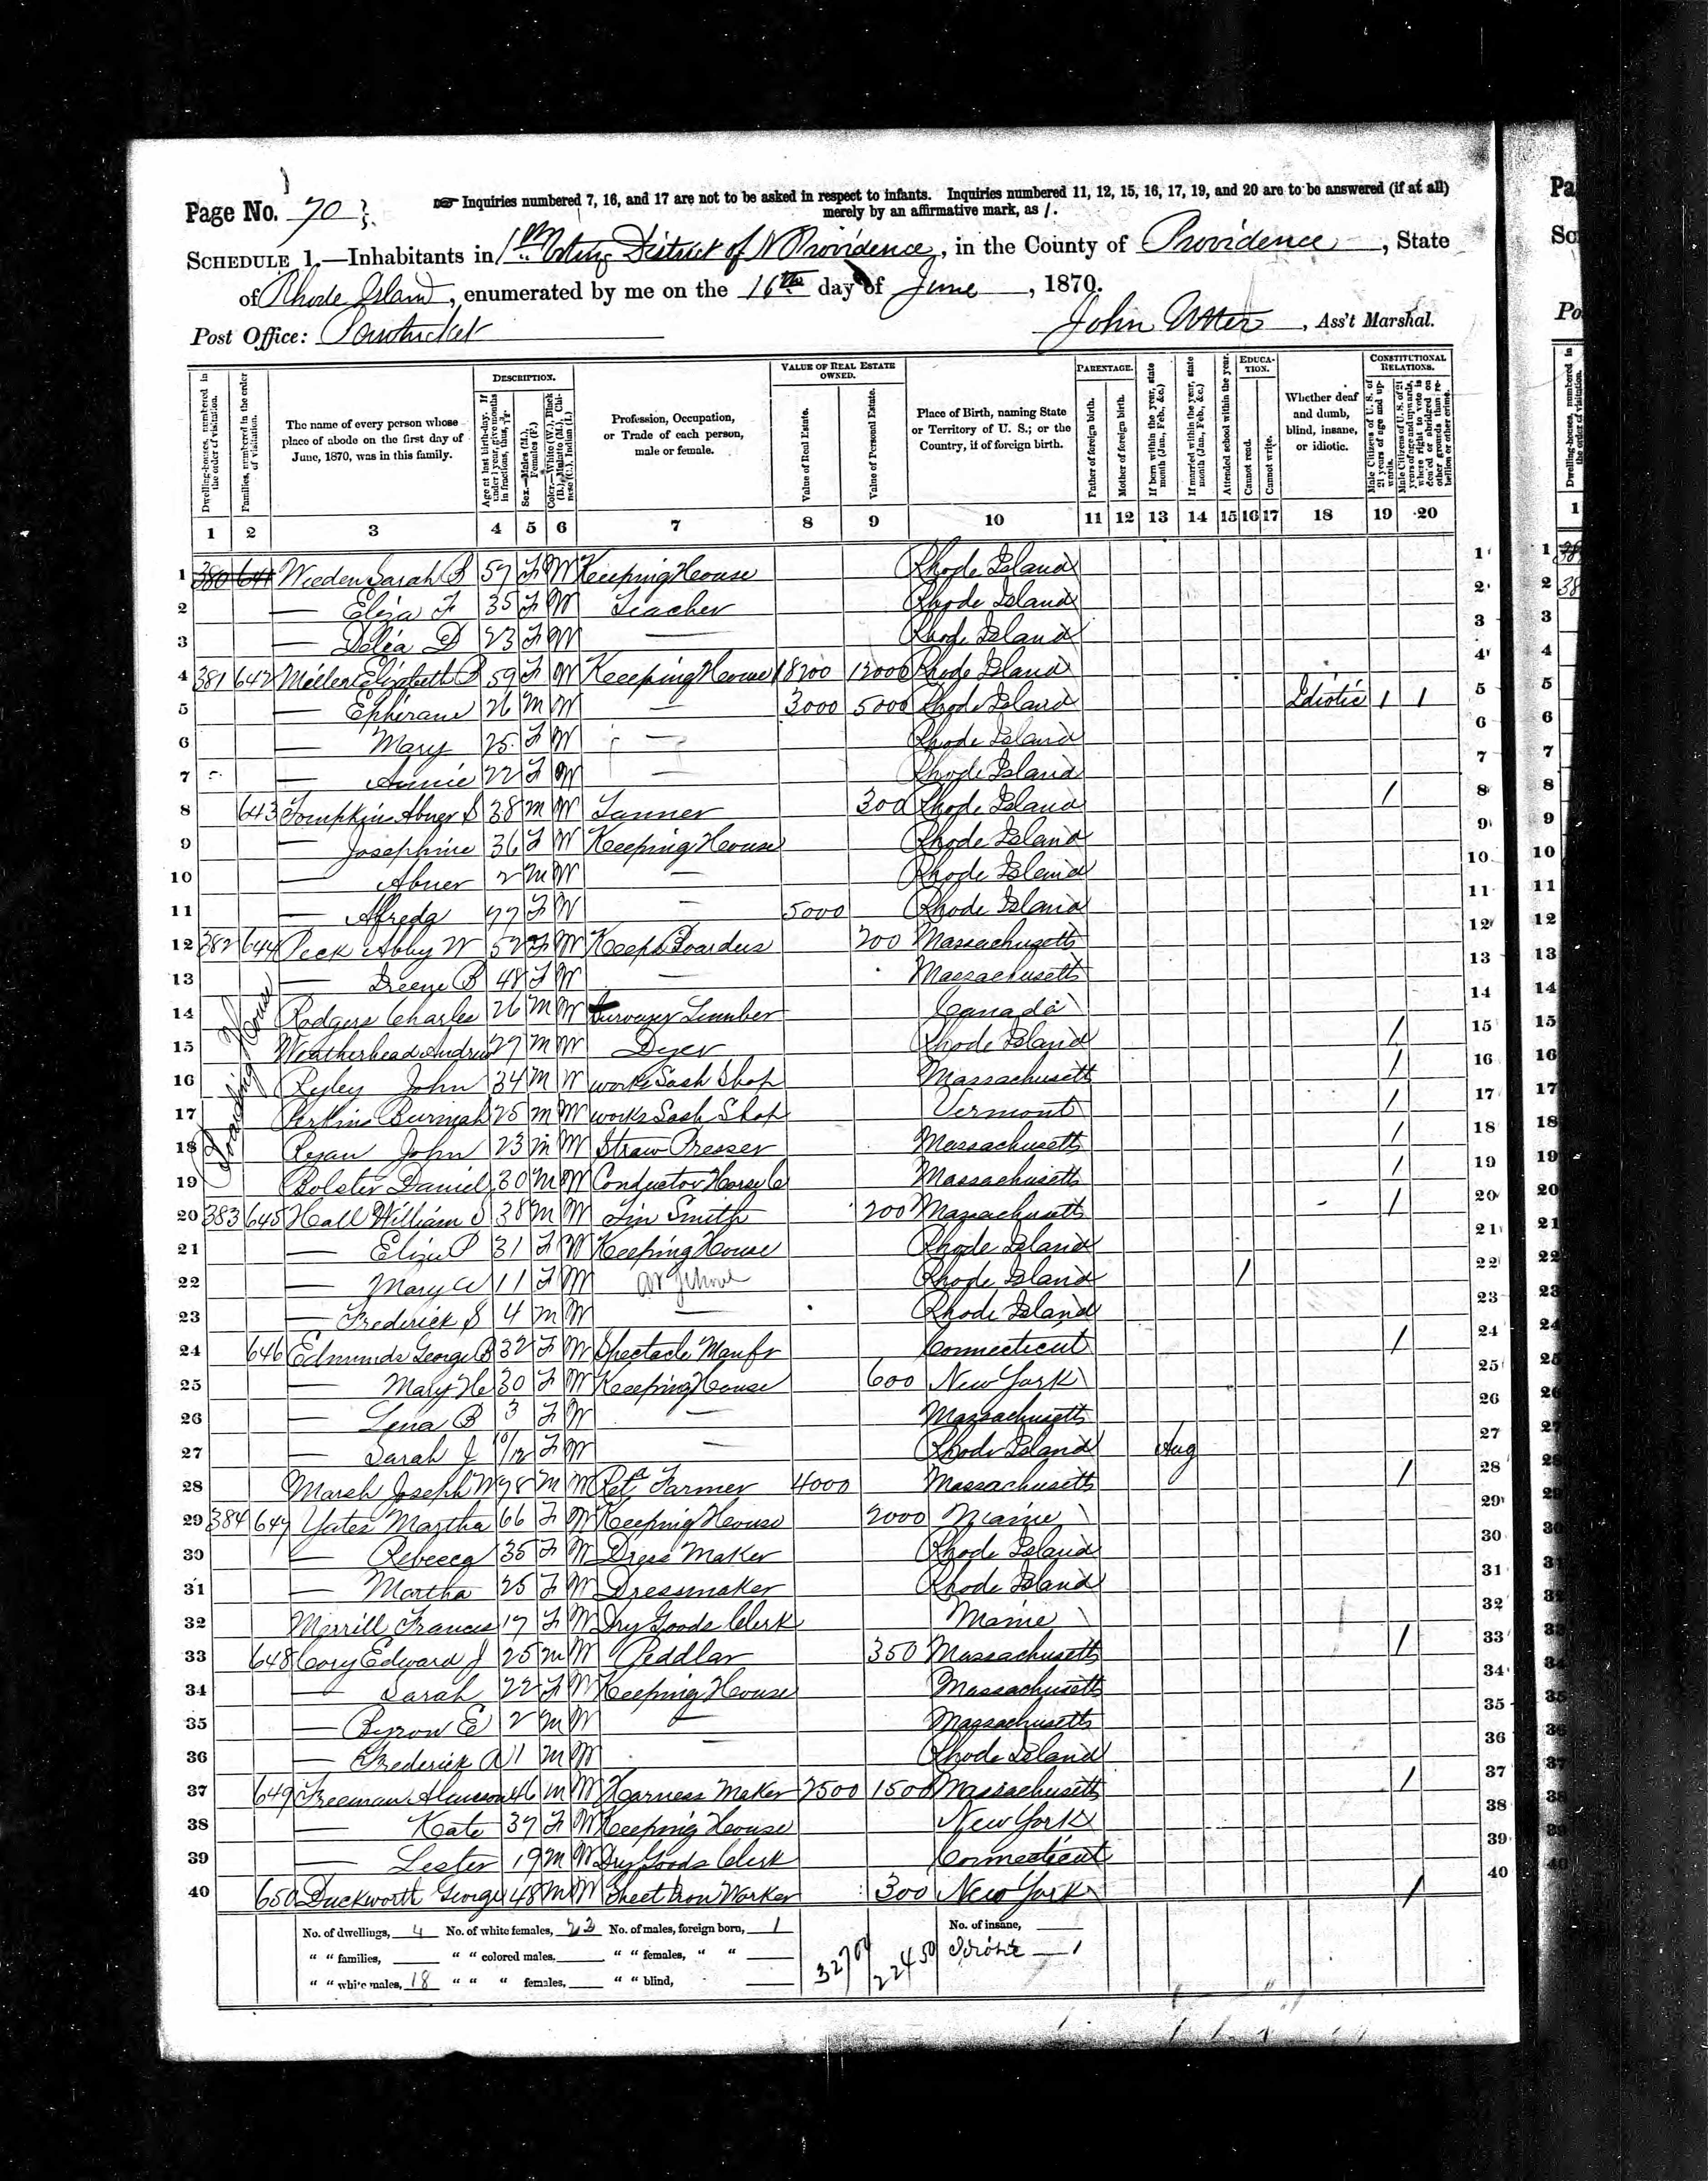 Page No. 70
Inquiries numbered 7, 16, and 17 are not to be asked in respect to infants. Inquiries numbered 11, 12, 15, 16, 17, 19, and 20 are to be answered (if at all)
merely by an affirmative mark, as /.
SCHEDULE 1.—Inhabitants in 1st Voting District of N Providence, in the County of Providence, State
of Rhode Island, enumerated by me on the 16th day of June, 1870.
Post Office: Pawtucket
John , Ass't Marshal.
Dwelling-houses, numbered in the order of visitation.
Families, numbered in the order of visitation.
The name of every person whose place of abode on the first day of June, 1870, was in this family.
DESCRIPTION.
Age at last birth-day. If under 1 year, give months in fractions, thus,
Sex.—Males (M.), Females (F.)
Color.—White (W.), Black (B.), Mulatto (M.), Chinese (C.), Indian (I.)
Profession, Occupation, or Trade of each person, male or female.
VALUE OF REAL ESTATE OWNED.
Value of Real Estate.
Value of Personal Estate.
Place of Birth, naming State or Territory of U. S.; or the Country, if of foreign birth.
PARENTAGE.
Father of foreign birth.
Mother of foreign birth.
If born within the year, state month (Jan., Feb., &c.)
If married within the year, state month (Jan., Feb., &c.)
Attended school within the year.
EDUCATION.
Cannot read.
Cannot write.
Whether deaf and dumb, blind, insane, or idiotic.
CONSTITUTIONAL RELATIONS.
Male Citizens of U. S. of 21 years of age and upwards.
Male Citizens of U. S. of 21 years of age and upwards, where right to vote is denied or abridged on other grounds than rebellion or other crime.
1 2 3 4 5 6 7 8 9 10 11 12 13 14 15 16 17 18 19 20
1 380 641 Weeden Sarah B 57 F W Keeping House Rhode Island 1
2 — Eliza F 35 F W Teacher Rhode Island 2
3 — Delia D 23 F W — Rhode Island 3
4 381 642 Miller Elizabeth B 59 F W Keeping House 18200 12000 Rhode Island 4
5 — 26 M W — 3000 5000 Rhode Island Idiotic 1 1 5
6 — Mary 25 F W — Rhode Island 6
7 — Annie 22 F W — Rhode Island 7
8 643 Tompkins Abner S 38 M W Tanner 300 Rhode Island / 8
9 — Josephine 36 F W Keeping House Rhode Island 9
10 — Abner 2 M W — Rhode Island 10
11 — Alfreda 77 F W — 5000 Rhode Island 11
12 382 644 Peck Abby W 52 F W Keeps Boarders 200 Massachusetts 12
13 — B 48 F W — Massachusetts 13
Boarding House
14 Rodgers Charles 26 M W Surveyer Lumber Canada 14
15 Weatherhead Andrew 27 M W Dyer Rhode Island / 15
16 Ryley John 34 M W works Sash Shop Massachusetts / 16
17 Perkins 25 M W works Sash Shop Vermont / 17
18 Ryan John 23 M W Straw Presser Massachusetts / 18
19 Bolster Daniel 30 M W Conductor Horse C Massachusetts / 19
20 383 645 Hall William S 38 M W Tin Smith 200 Massachusetts / 20
21 — Eliza P 31 F W Keeping House Rhode Island 21
22 — Mary W 11 F W At School Rhode Island / 22
23 — Frederick S 4 M W — Rhode Island 23
24 646 Edmunds George B 32 F W Spectacle Manfr Connecticut / 24
25 — Mary H 30 F W Keeping House 600 New York 25
26 — Lena B 3 F W — Massachusetts 26
27 — Sarah J 10/12 F W — Rhode Island Aug 27
28 Marsh Joseph W 78 M W Retd Farmer 4000 Massachusetts / 28
29 384 647 Yates Martha 66 F W Keeping House 2000 Maine 29
30 — Rebecca 35 F W Dress Maker Rhode Island 30
31 — Martha 25 F W Dressmaker Rhode Island 31
32 Merrill Frances 17 F W Dry Goods Clerk Maine 32
33 648 Cory Edward J 25 M W Peddlar 350 Massachusetts / 33
34 — Sarah 22 F W Keeping House Massachusetts 34
35 — Byron E 2 M W — Massachusetts 35
36 — Frederick A 1 M W — Rhode Island 36
37 649 Freeman Alanson 46 M W Harness Maker 2500 1500 Massachusetts / 37
38 — Kate 37 F W Keeping House New York 38
39 — Lester 19 M W Dry Goods Clerk Connecticut 39
40 650 Duckworth George 48 M W Sheet Iron Worker 300 New York / 40
No. of dwellings, 4 No. of white females, 23 No. of males, foreign born, 1 No. of insane,
" " families, " " colored males, " " females, " " 32700 22450 Idiotic — 1
" " white males, 18 " " " females, " " blind,